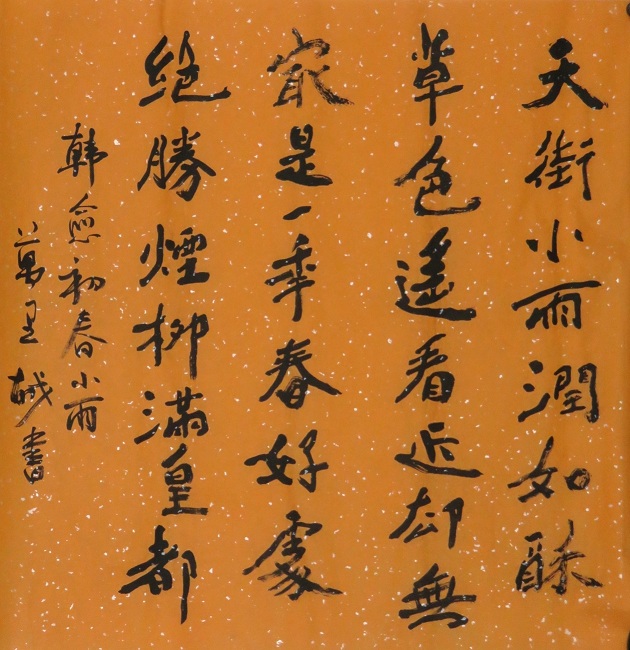 天街小雨潤如酥
草色遙看近却無
最是一年春好處
絶勝煙柳滿皇都
韓愈初春小雨
萬里書